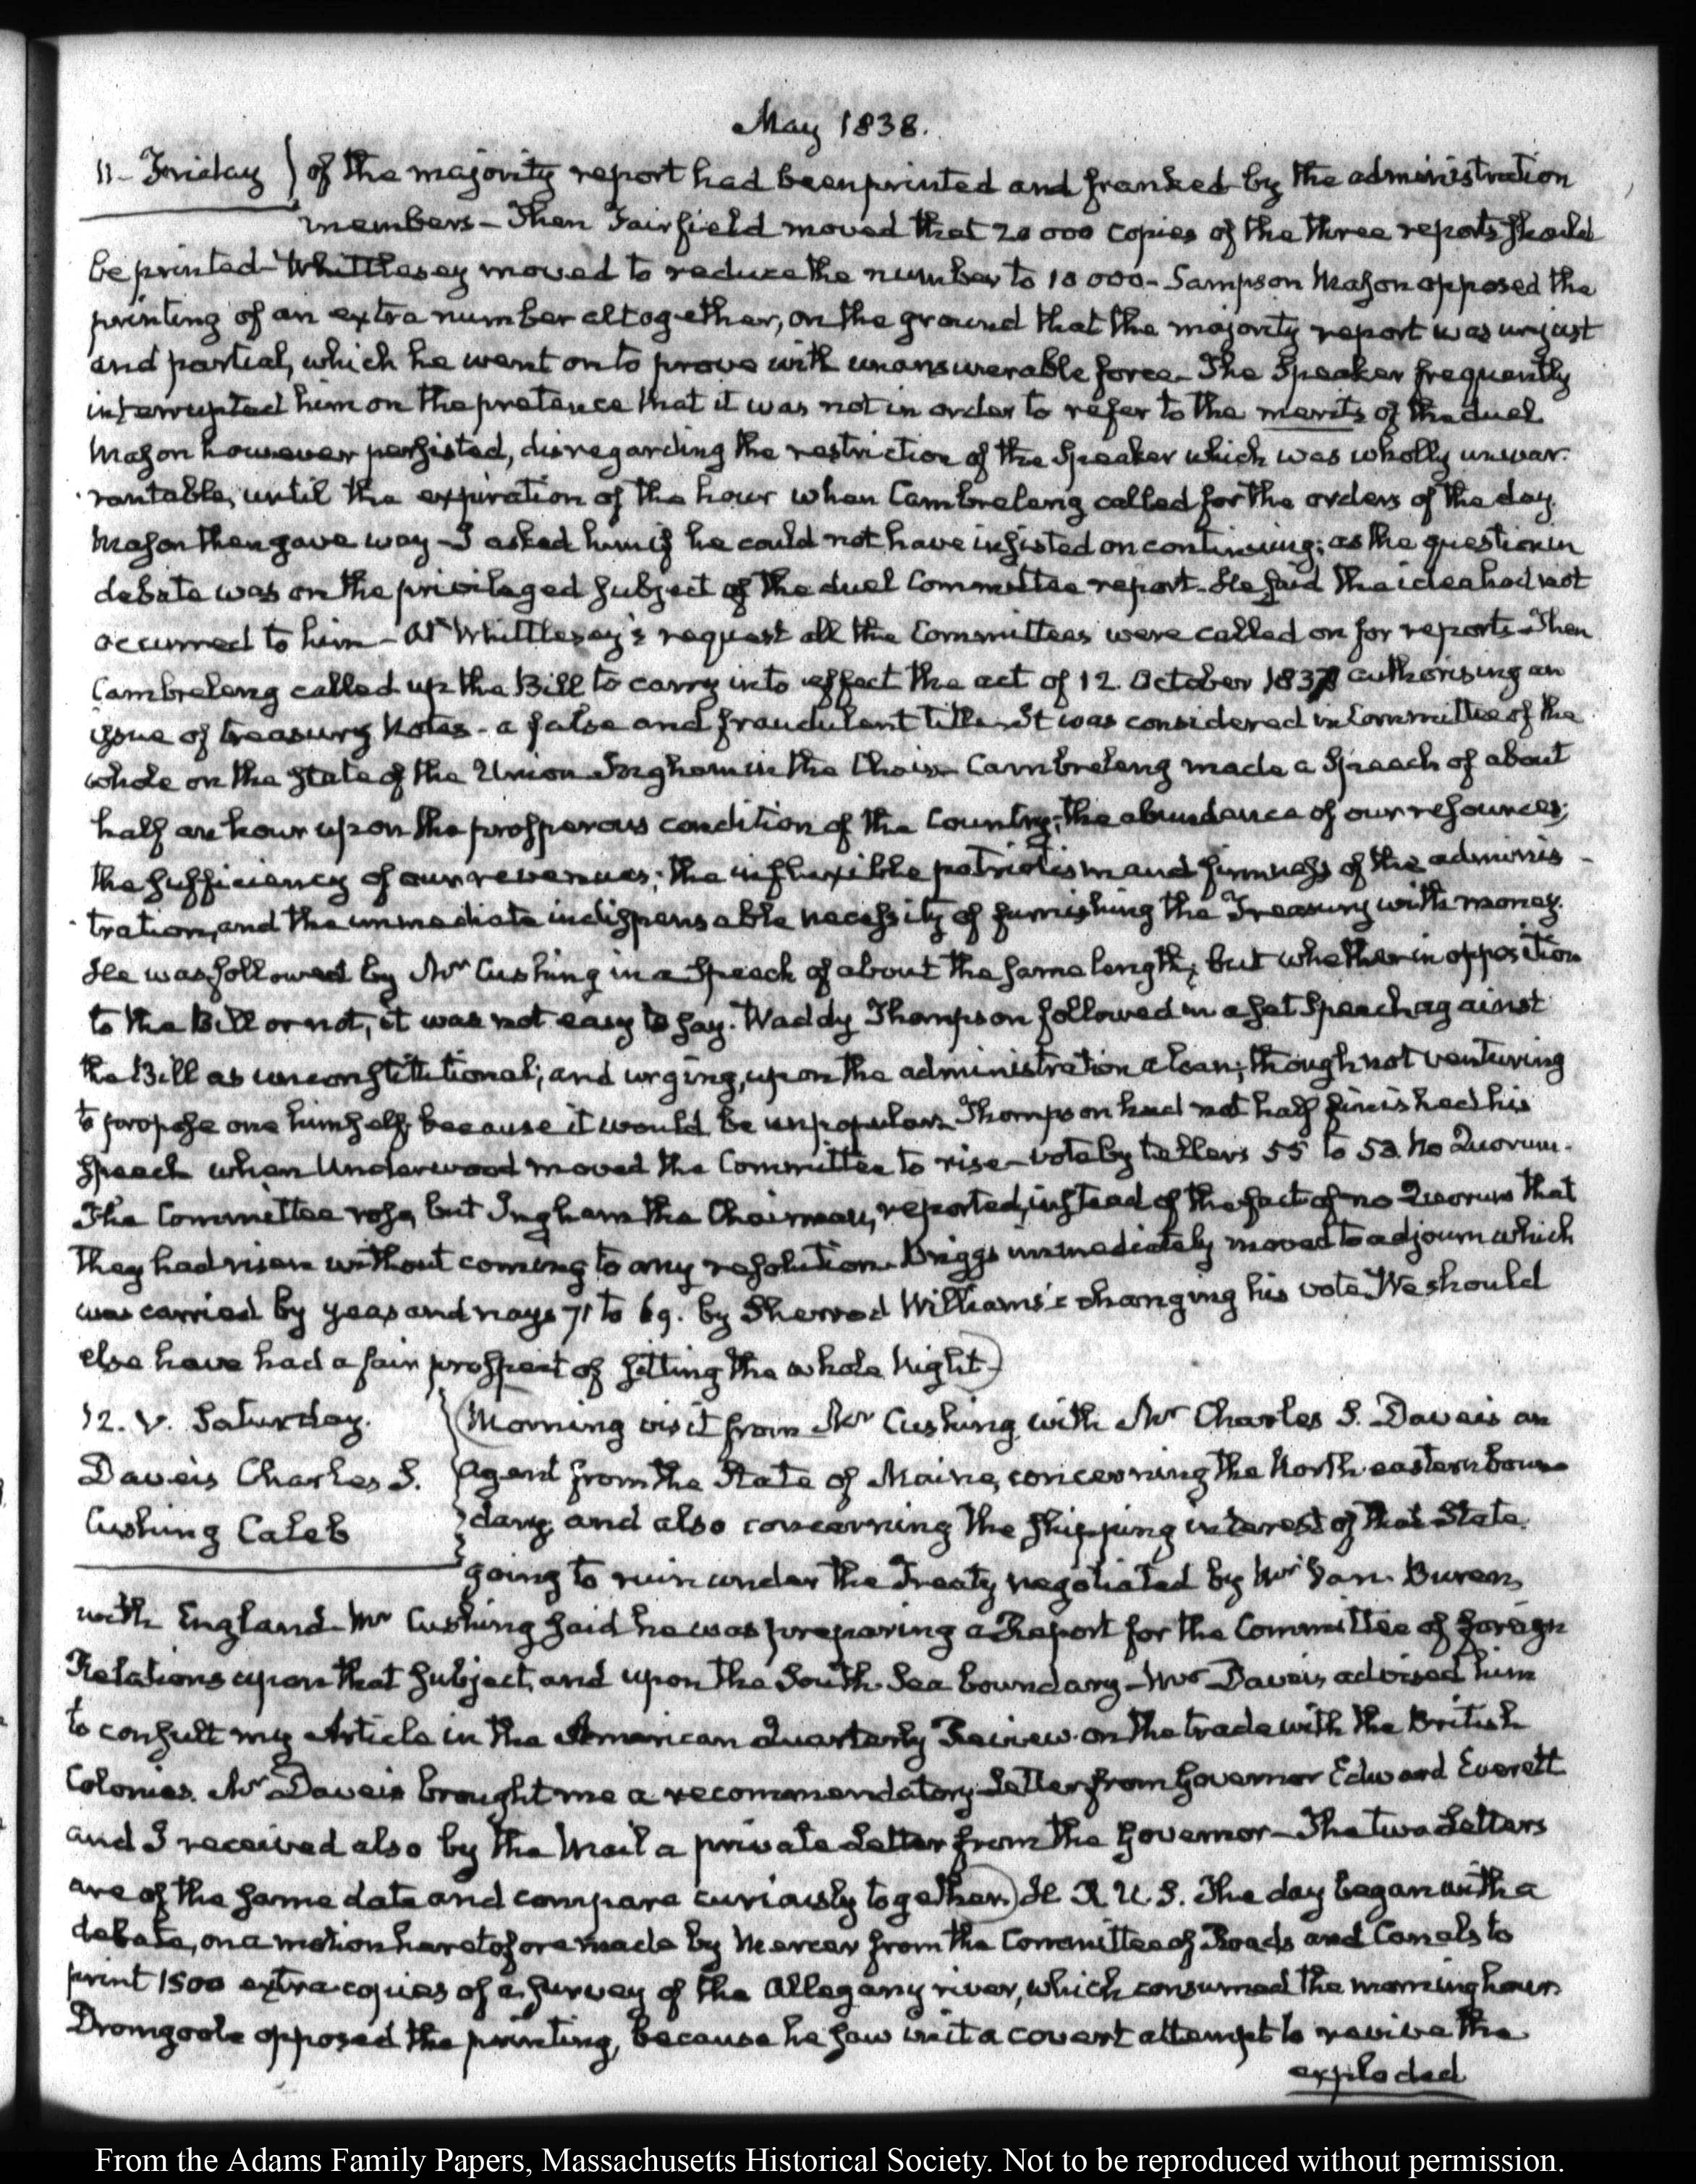 May 1838.
11- Friday } of the majority report had been printed and franked by the administration
members - Then Fairfield moved that 20 000 copies of the three reports should
be printed - Whittlesey moved to reduce the number to 10 000 - Sampson Mason opposed the
printing of an extra number altogether, on the ground that the majority report was unjust
and partial, which he went on to prove with unanswerable force - The Speaker frequently
interrupted him on the pretence that it was not in order to refer to the merits of the duel
Mason however persisted, disregarding the restriction of the Speaker which was wholly unwar-
rantable, until the expiration of the hour when Cambreleng called for the orders of the day.
Mason then gave way - I asked him if he could not have insisted on continuing; as the question in
debate was on the privileged subject of the duel Committee report - He said the idea had not
occurred to him - At Whittlesey's request all the Committees were called on for reports - Then
Cambreleng called up the Bill to carry into effect the act of 12. October 1837 authorising an
issue of treasury Notes - a false and fraudulent title - It was considered in Committee of the
whole on the State of the Union Ingham in the Chair - Cambreleng made a Speech of about
half an hour upon the prosperous condition of the Country; the abundance of our resources;
the sufficiency of our revenues; the inflexible patriotism and firmness of the adminis-
tration, and the immediate indispensable necessity of furnishing the Treasury with money.
He was followed by Mr Cushing in a Speech of about the same length; but whether in opposition
to the Bill or not, it was not easy to say. Waddy Thompson followed in a set Speech against
the Bill as unconstitutional; and urging, upon the administration a loan; though not venturing
to propose one himself, because it would be unpopular. Thompson had not half finished his
Speech when Underwood moved the Committee to rise - vote by tellers 55 to 52 no Quorum.
The Committee rose, but Ingham the Chairman, reported, instead of the fact of no Quorum that
they had risen without coming to any resolution. Briggs immediately moved to adjourn which
was carried by yeas and nays 71 to 69. by Sherrod Williams's changing his vote. We should
else have had a fair prospect of sitting the whole Night.)
12. V. Saturday. (Morning visit from Mr Cushing with Mr Charles S. Daveis an
Daveis Charles S. agent from the State of Maine, concerning the North eastern boun-
Cushing Caleb dary, and also concerning the shipping interest of that State
going to ruin under the Treaty negotiated by Mr Van Buren,
with England - Mr Cushing said he was preparing a Report for the Committee of foreign
Relations upon that subject, and upon the South Sea boundary - Mr Daveis advised him
to consult my Article in the American Quarterly Review on the trade with the British
Colonies. Mr Daveis brought me a recommendatory Letter from Governor Edward Everett
and I received also by the Mail a private Letter from the Governor - The two Letters
are of the same date and compare curiously together.) H R U.S. The day began with a
debate, on a motion heretofore made by Mercer from the Committee of Roads and Canals to
print 1500 extra copies of a survey of the Allegany river, which consumed the morning hour
Dromgoole opposed the printing, because he saw in it a covert attempt to revive the
exploded
From the Adams Family Papers, Massachusetts Historical Society. Not to be reproduced without permission.